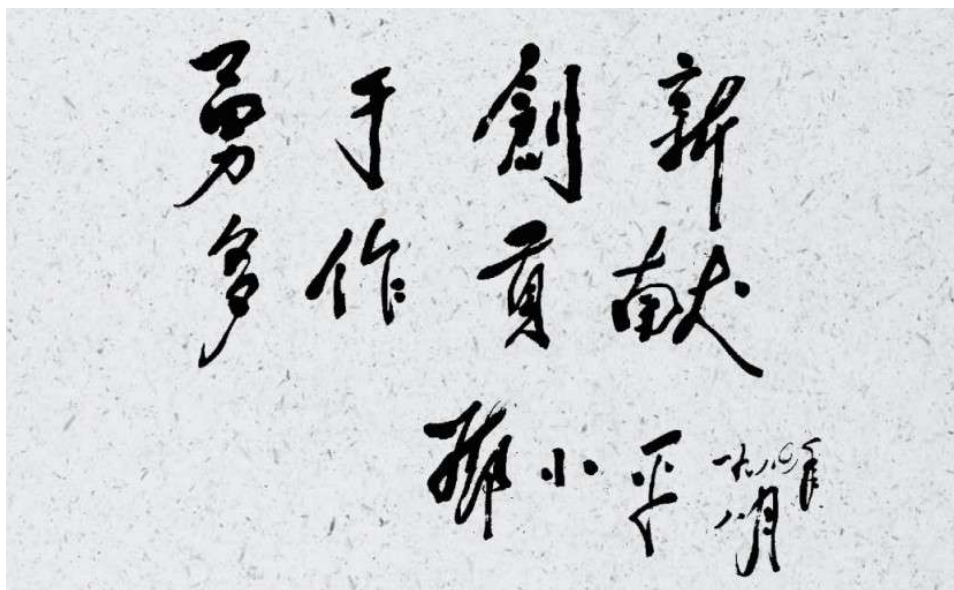 勇于創新
多作貢献
鄧小平
一九八〇年
八月